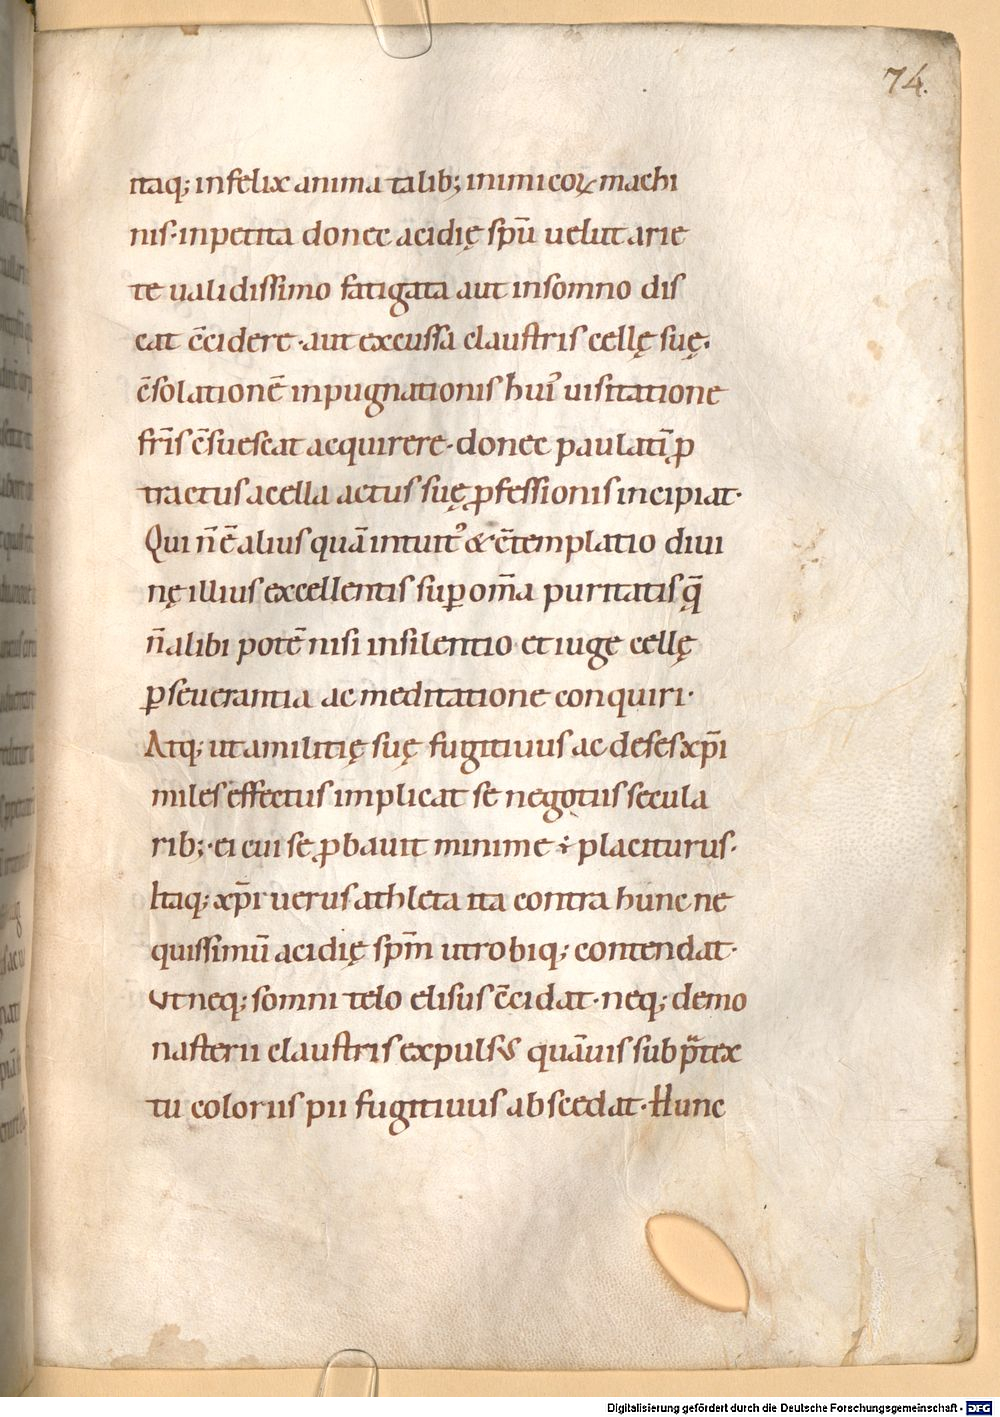 74.
itaq; infelix anima talib; inimicoꝝ machi
nis· inpetita donec acidię spū uelut arie
te ualidissimo fatigata aut in somno dis
cat c̄cidere· aut excussa claustris cellę suę.
c̄solationē inpugnationis hui᾽ uisitatione
fr̄is c̄suescat acquirere· donec paulatī ꝓ
tractus a cella actus suę ꝓfessionis incipiat·
Qui n̄ ē alius quā intuit᾽ & c̄templatio diui
nę illius excellentis suꝑ om̄a puritatis q̄
n̄ alibi potē nisi in silentio et iuge cellę
ꝑseuerantia ac meditatione conquiri·
Atq; ut a militię suę fugitiuus ac deses xp̄i
miles effectus implicat se negotiis secula
rib;· ei cui se ꝓbauit minime ÷ placiturus·
Itaq; xp̄i uerus athleta ita contra hunc ne
quissimū acidię spm̄ utrobiq; contendat·
Ut neq; somni telo elisus c̄cidat· neq; de mo
nasterii claustris expulsus quāuis sub p̄tex
tu coloris pii fugitiuus abscedat· Hunc
Digitalisierung gefördert durch die Deutsche Forschungsgemeinschaft - DFG